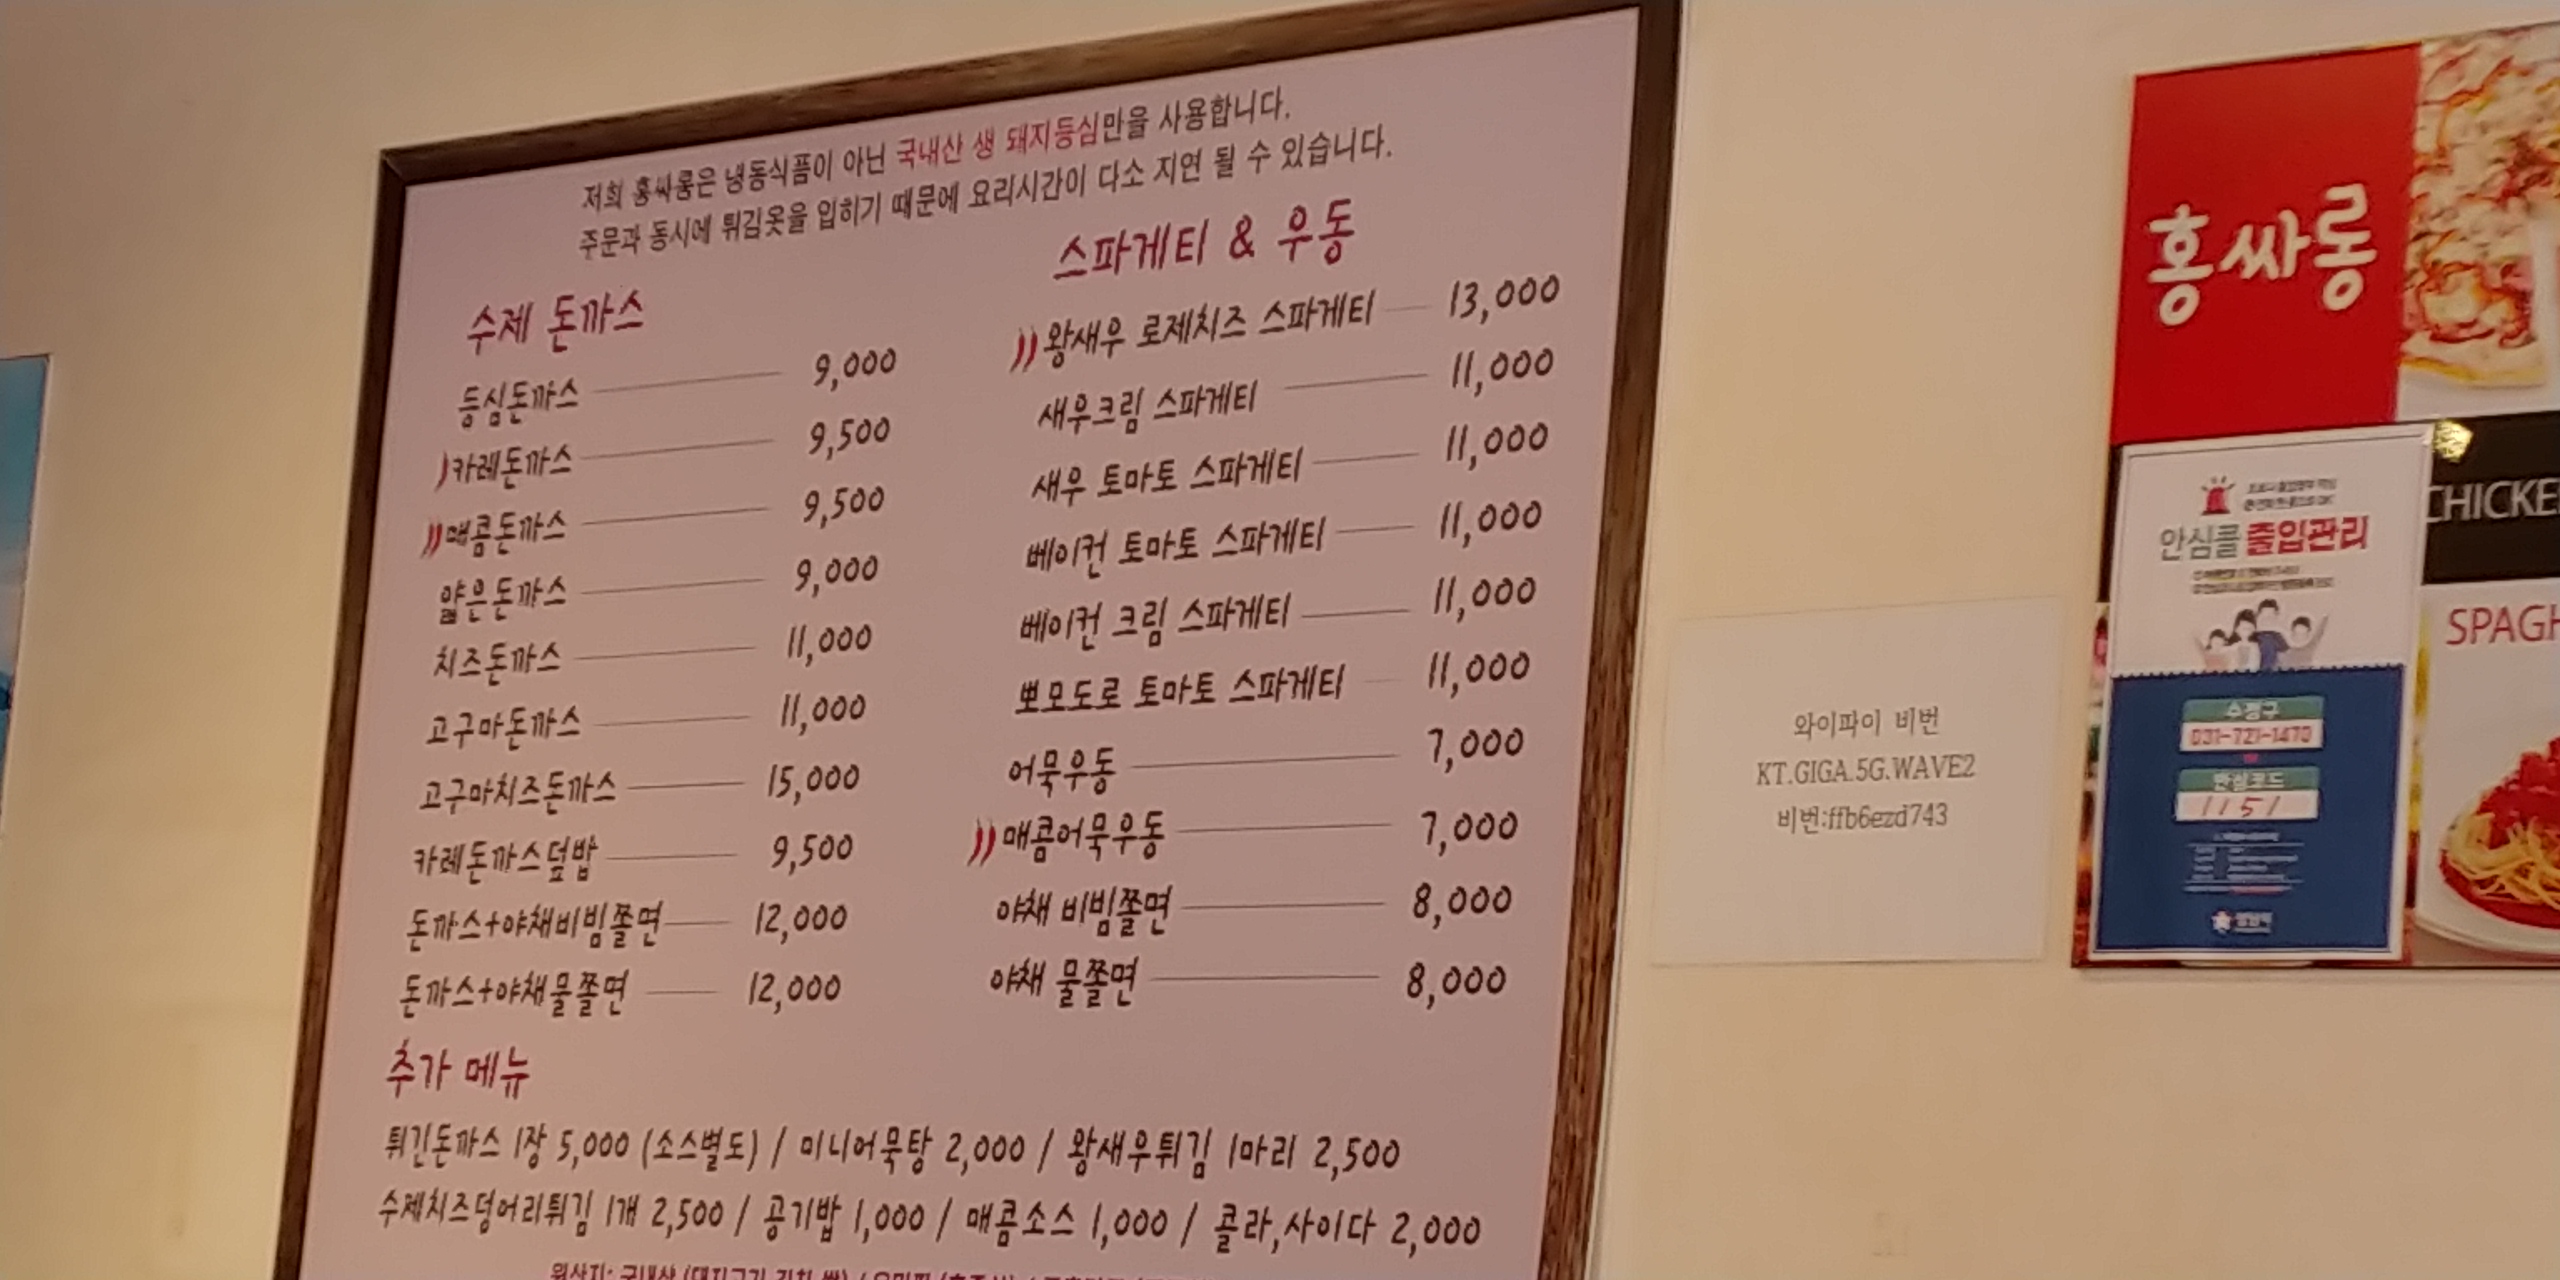 저희 홍싸롱은 냉동식품이 아닌 국내산 생 돼지등심만을 사용합니다.
주문과 동시에 튀김옷을 입히기 때문에 요리시간이 다소 지연 될 수 있습니다.
수제 돈까스
등심돈까스 9,000
카레돈까스 9,500
매콤돈까스 9,500
얇은돈까스 9,000
치즈돈까스 11,000
고구마돈까스 11,000
고구마치즈돈까스 15,000
카레돈까스덮밥 9,500
돈까스+야채비빔쫄면 12,000
돈까스+야채물쫄면 12,000
스파게티 & 우동
왕새우 로제치즈 스파게티 13,000
새우크림 스파게티 11,000
새우 토마토 스파게티 11,000
베이컨 토마토 스파게티 11,000
베이컨 크림 스파게티 11,000
뽀모도로 토마토 스파게티 11,000
어묵우동 7,000
매콤어묵우동 7,000
야채 비빔쫄면 8,000
야채 물쫄면 8,000
추가 메뉴
튀긴돈까스 1장 5,000 (소스별도) / 미니어묵탕 2,000 / 왕새우튀김 1마리 2,500
수제치즈덩어리튀김 1개 2,500 / 공기밥 1,000 / 매콤소스 1,000 / 콜라,사이다 2,000
원산지: 국내산
와이파이 비번
KT.GIGA.5G.WAVE2
비번:ffb6ezd743
홍싸롱
CHICKE
SPAGH
안심콜 출입관리
수정구
031-721-1470
안심코드
1151